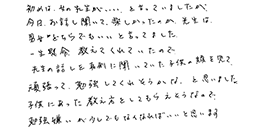 初めは、女の先生が.... と言っていましたが
今日、お話し聞いて、楽しかったのか、先生は、
男女どちらでもいいと言ってました。
一生懸命 教えてくれていたので
先生の話しを真剣に聞いていた子供の姿を見て
頑張って、勉強してくれそうかな、と思いました。
子供にあった教え方としてもらえそうなので、
勉強嫌いが少しでもなくなればいいと思います